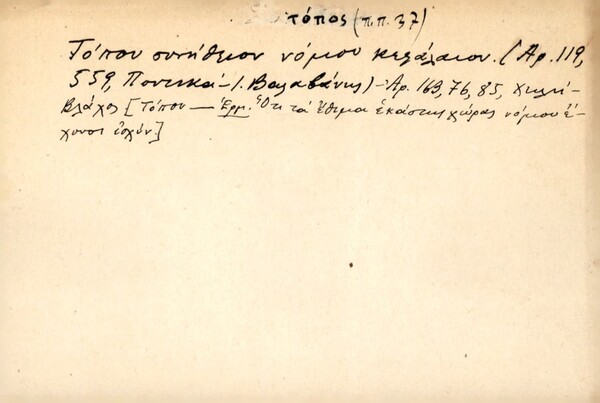 τόπος (π.π. 37)
Τόπου συνήθειον νόμου κεφάλαιον. (Αρ. 119,
559, Ποντικά - Ι. Βαλαβάνης) - Αρ. 163, 76, 85,
Βλάχος [Τόπου — Ερμ. Ὅτι τά ἔθιμα ἑκάστης χώρας νόμου ἔ-
χουσι ἰσχύν.]